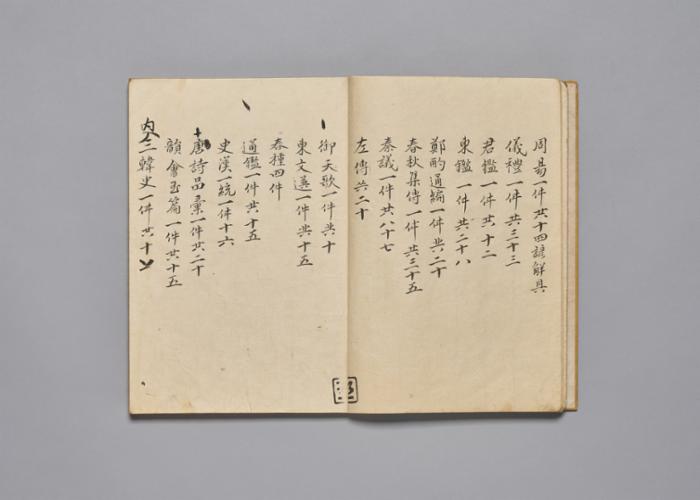 周易一件共十四諺解具
儀禮一件共三十三
君鑑一件共十二
東鑑一件共二十八
鄭酌通編一件共二十
春秋集傳一件共三十五
奏議一件共八十七
左傳共二十
御天歌一件共十
東文選一件共十五
春種四件
通鑑一件共十五
史漢一統一件十六
唐詩品彙一件共二十
韻會玉篇一件共十五
內 三韓史一件共十